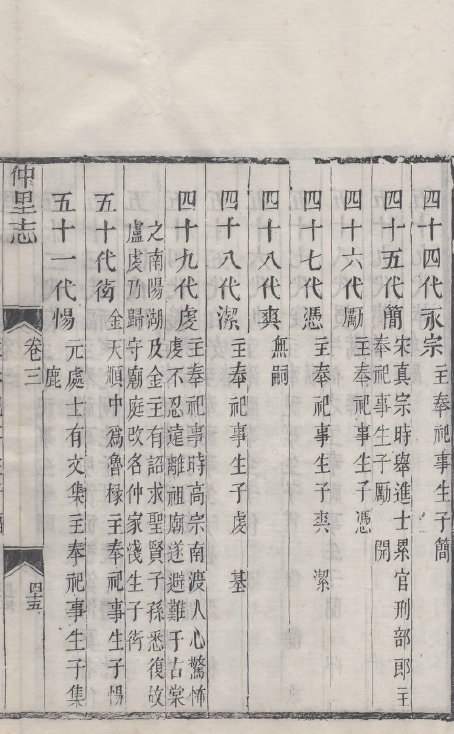 四十四代永宗主奉祀事生子簡
四十五代簡宋真宗時舉進士累官刑部郎主
奉祀事生子勵 開
四十六代勵主奉祀事生子憑
四十七代憑主奉祀事生子奭 潔
四十八代奭無嗣
四十八代潔主奉祀事生子虔 基
四十九代虔主奉祀事時高宗南渡人心驚怖
虔不忍遠離祖廟遂避難于古棠
之南陽湖及金主有詔求聖賢子孫悉復故
廬虔乃歸守廟庭改名仲家淺生子
五十代 金天順中為魯橡主奉祀事生子惕
五十一代惕元處士有文集主奉祀事生子集
鹿
仲里志
卷三
四十五